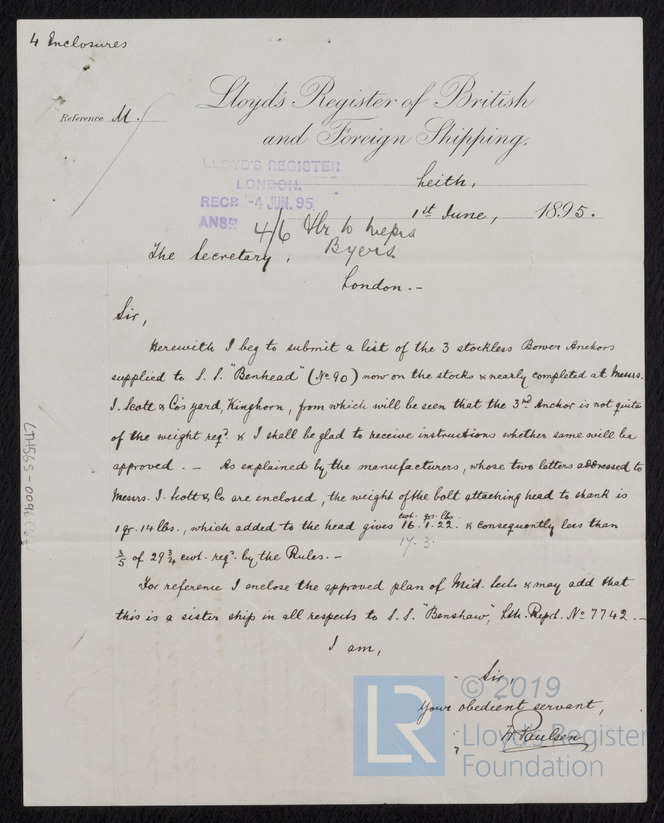 4 Enclosures
Lloyd's Register of British
and Foreign Shipping.
Reference M.
LLOYD'S REGISTER
LONDON.
RECD -4 JUN. 95
ANSD
Leith,
1st June, 1895.
4/6 to Messrs
Byers
The Secretary,
London.-
Sir,
Herewith I beg to submit a list of the 3 stockless Bower Anchors
supplied to S.S. "Benhead" (No 90) now on the stocks & nearly completed at Messrs.
J. Scott & Co's yard, Kinghorn, from which will be seen that the 3rd Anchor is not quite
of the weight reqd. & I shall be glad to receive instructions whether same will be
approved. - As explained by the manufacturers, whose two letters addressed to
Messrs. J. Scott & Co are enclosed, the weight of the bolt attaching head to shank is
cwt. qrs. lbs.
1 qr. 14 lbs., which added to the head gives 16. 1. 22. & consequently less than
17. 3.
3/5 of 29 3/4 cwt. reqd. by the Rules. -
For reference I enclose the approved plan of Mid. Sects & may add that
this is a sister ship in all respects to S.S. "Benshaw", Lth. Rept. No 7742. -
I am,
Sir,
Your obedient servant,
Paulsen
LTH565-0096
© 2019
LR
Lloyd's Register
Foundation